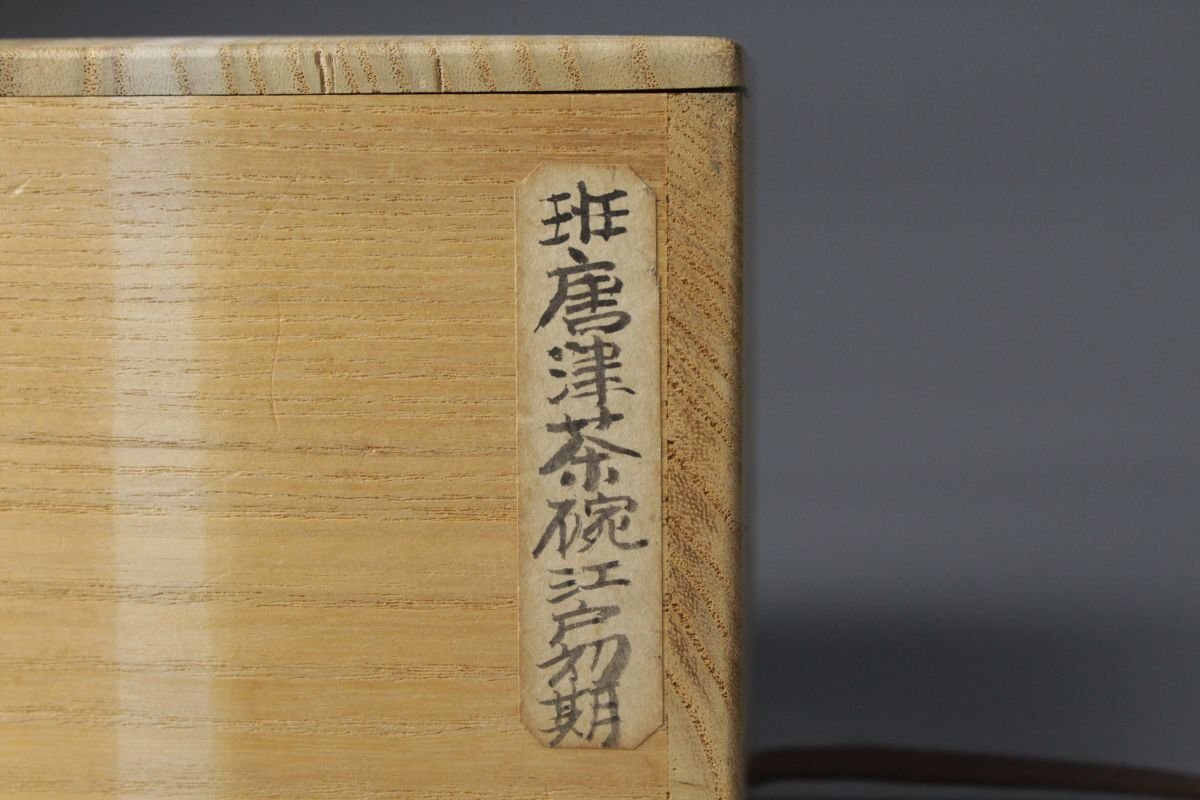 班唐津茶碗江戸初期